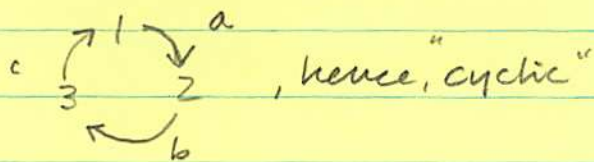 1 a
c
3 2 , hence, "cyclic"
b